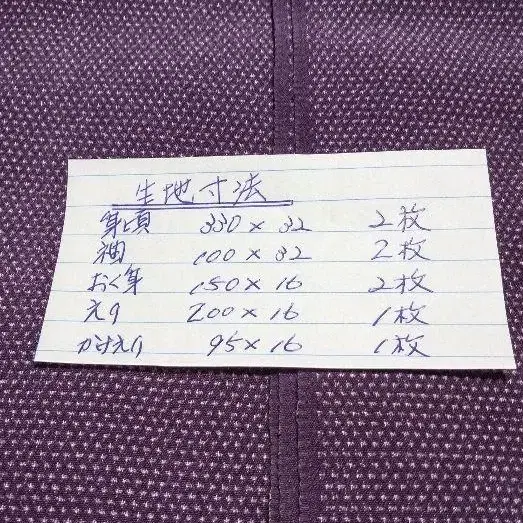 生地寸法
身頃 330×32 2枚
袖 100×32 2枚
おく身 150×16 2枚
えり 200×16 1枚
かけえり 95×16 1枚